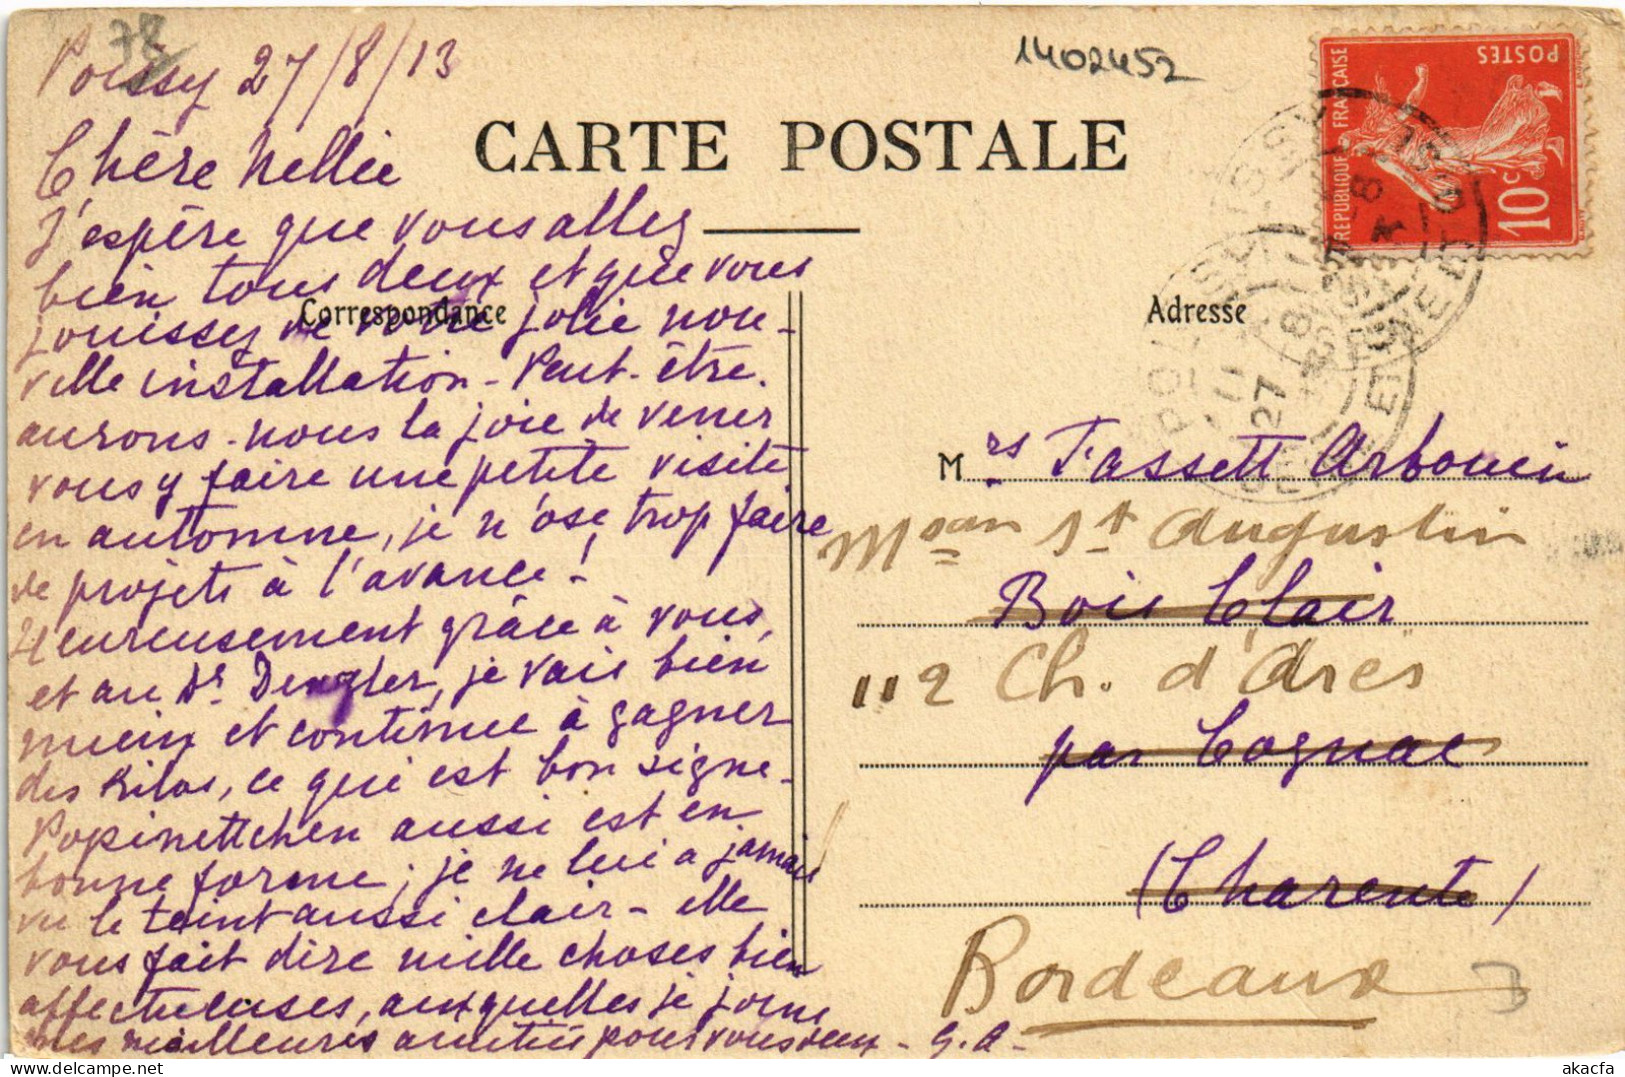 78
Poissy 27/8/13
1402452
CARTE POSTALE
REPUBLIQUE FRANÇAISE
POSTES
10 c
Chère Nellie
J'espère que vous allez
bien tous deux et que vous
jouissez de votre jolie nou-
velle installation - Peut-être
aurons-nous la joie de venir
vous y faire une petite visite
en automne, je n'ose trop faire
de projets à l'avance!
Heureusement grâce à vous,
et au Dr. Dengler, je vais bien
mieux et continue à gagner
des kilos, ce qui est bon signe-
Popinettchen aussi est en
bonne forme; je ne lui a jamais
vu le teint aussi clair - elle
vous fait dire mille choses bien
affectueuses, auxquelles je joins
mes meilleures amitiés pour vous deux - G.A-
Correspondance
Adresse
POISSY
27
SEINE ET
Mrs Fassett Arbouin
Mson St Augustin
Bois Clair
112 Ch. d'Ares
par Cognac
(Charente)
Bordeaux
akacfa